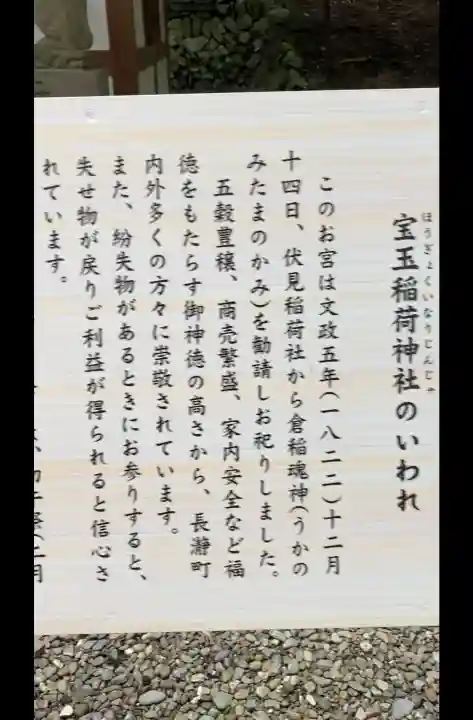 宝玉稲荷神社のいわれ
ほうぎょくいなりじんじゃ
このお宮は文政五年(一八二二)十二月
十四日、伏見稲荷社から倉稲魂神(うかの
みたまのかみ)を勧請しお祀りしました。
五穀豊穣、商売繁盛、家内安全など福
徳をもたらす御神徳の高さから、長瀞町
内外多くの方々に崇敬されています。
また、紛失物があるときにお参りすると、
失せ物が戻りご利益が得られると信心さ
れています。